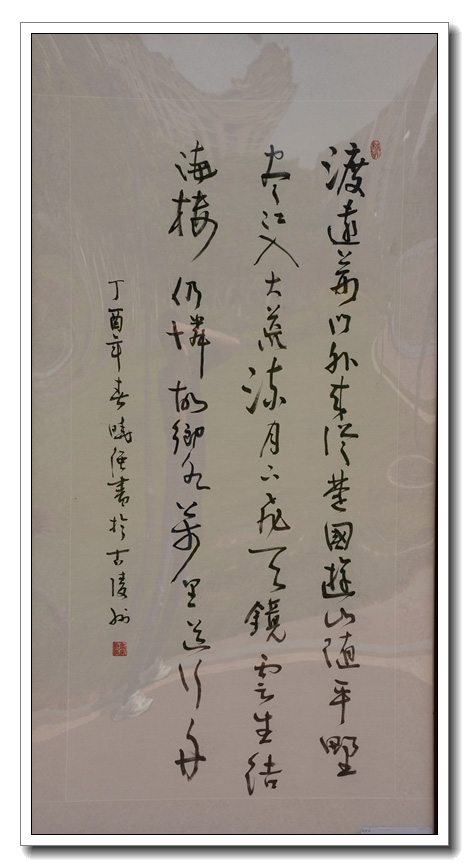 渡遠荊门外来從楚國遊山随平野
尽江入大荒流月下飛天鏡雲生結
海楼仍憐故鄉水萬里送行舟
丁酉年春曉書於古陵州